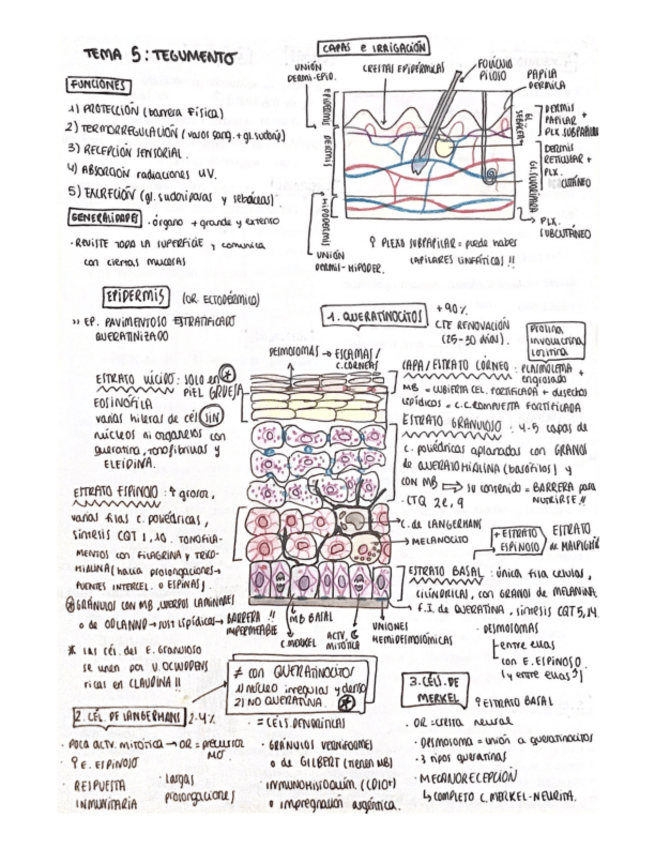 TEMA 5: TEGUMENTO
FUNCIONES
1) PROTECCIÓN (barrera física)
2) TERMORREGULACIÓN (vasos sang. + gl. sudoríp)
3) RECEPCIÓN SENSORIAL.
4) ABSORCIÓN radiaciones UV.
5) EXCRECIÓN (gl. sudoríparas y sebáceas)
GENERALIDADES · órgano + grande y extenso
· REVISTE TODA LA SUPERFICIE y comunica
con ciertas mucosas
CAPAS e IRRIGACIÓN
UNIÓN
DERMI-EPID.
CRESTAS EPIDÉRMICAS
FOLÍCULO
PILOSO
PAPILA
DÉRMICA
EPIDERMIS
DERMIS
HIPODERMIS
GL. SEBÁCEA
GL. SUDORÍPARA
DERMIS
PAPILAR +
PLX SUBPAPILAR
DERMIS
RETICULAR +
PLX.
CUTÁNEO
PLX.
SUBCUTÁNEO
UNIÓN
DERMIS-HIPODER.
PLEXO SUBPAPILAR = puede haber
CAPILARES LINFÁTICOS !!
EPIDERMIS (OR ECTODÉRMICO)
EP. PAVIMENTOSO ESTRATIFICADO
QUERATINIZADO
1. QUERATINOCITOS
+90%
CTE RENOVACIÓN
(25-30 días).
Prolina
involucrina
Loricrina
DESMOSOMAS → ESCAMAS /
C. CÓRNEAS
ESTRATO LÚCIDO: SOLO en
PIEL GRUESA
EOSINÓFILA
varias hileras de cél SIN
núcleos ni orgánulos con
queratina, tonofibrillas y
ELEIDINA.
CAPA/ESTRATO CÓRNEO: PLASMOLEMA +
engrosado
MB = CUBIERTA CEL. FORTIFICADA + desechos
lipídicos = C.C. COMPUESTA FORTIFICADA
ESTRATO GRANULOSO: 4-5 capas de
c. poliédricas aplanadas con GRANOS
de QUERATOHIALINA (basófilos) y
CON MB ⇒ su contenido = BARRERA para
NUTRIRSE !!
· CTQ 2e, 9
ESTRATO ESPINOSO: ↑ grosor,
varias filas c. poliédricas,
síntesis CQT 1, 10. TONOFILA-
MENTOS con FILAGRINA y TRICO-
HIALINA (hacia prolongaciones →
PUENTES INTERCEL. o ESPINAS)
GRÁNULOS CON MB, CUERPOS LAMINARES
o de ODLAND → sust lipídicas → BARRERA !!
IMPERMEABLE
* Las cél. del E. Granuloso
se unen por V. OCLUDENS
ricas en CLAUDINA !!
C. de LANGERHANS
MELANOCITO
+ ESTRATO
ESPINOSO
ESTRATO
DE MALPIGHI
ESTRATO BASAL: única fila células,
cilíndricas, con GRANOS de MELANINA,
F.I. de QUERATINA, síntesis CQT 5, 14.
· DESMOSOMAS
entre ellas
con E. ESPINOSO
(y entre ellas)
MB BASAL
C. MERKEL
ACTV.
MITÓTICA
UNIONES
HEMIDESMOSÓMICAS
≠ con QUERATINOCITOS
1) NÚCLEO irregular y denso
2) NO QUERATINA.
2. CÉL. DE LANGERHANS 2-4%
· POCA ACTV. MITÓTICA → OR = precursor
MO
E. ESPINOSO
· RESPUESTA
INMUNITARIA
· largas
prolongaciones
· = CÉLS. DENDRÍTICAS
· GRÁNULOS VERMIFORMES
o de GILBERT (tienen MB)
· INMUNOHISTOQUÍM. (CD10+)
o impregnación argéntica.
3. CÉLS. DE
MERKEL
ESTRATO BASAL
· OR = cresta neural
· Desmosoma = unión a queratinocitos
· 3 tipos queratinas
· MECANORECEPCIÓN
↳ COMPLETO C. MERKEL-NEURITA.